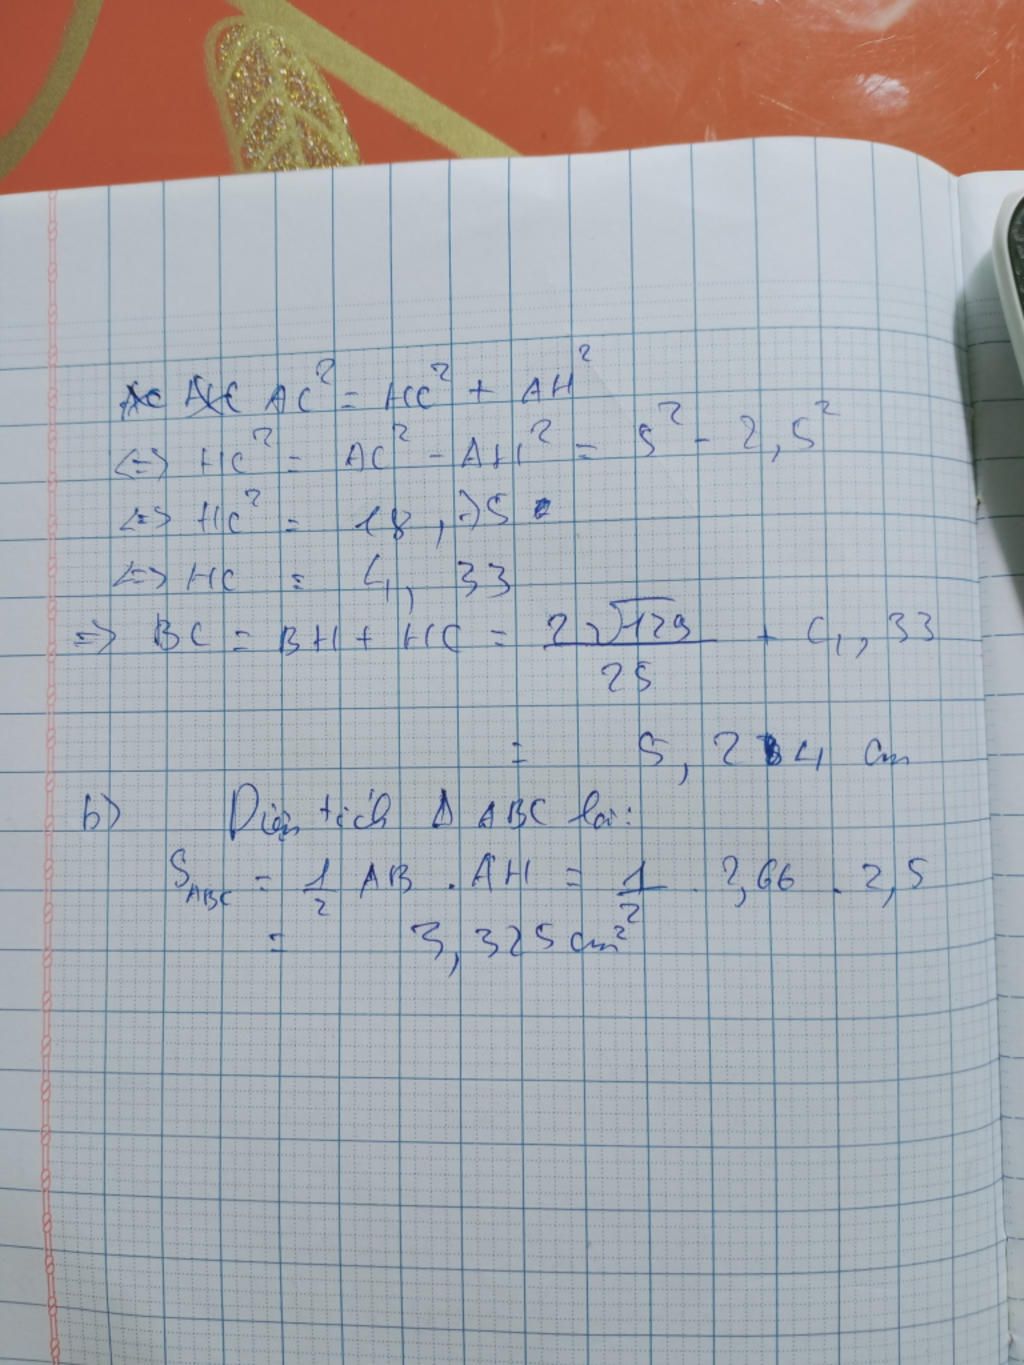 AC² = HC² + AH²
<=> HC² = AC² - AH² = 5² - 2,5²
<=> HC² = 18,75
<=> HC = 4,33
=> BC = BH + HC = 2√129/25 + 4,33
= 5,24 cm
b) Diện tích Δ ABC là:
S_ABC = 1/2 AB . AH = 1/2 . 2,66 . 2,5
= 3,325 cm²